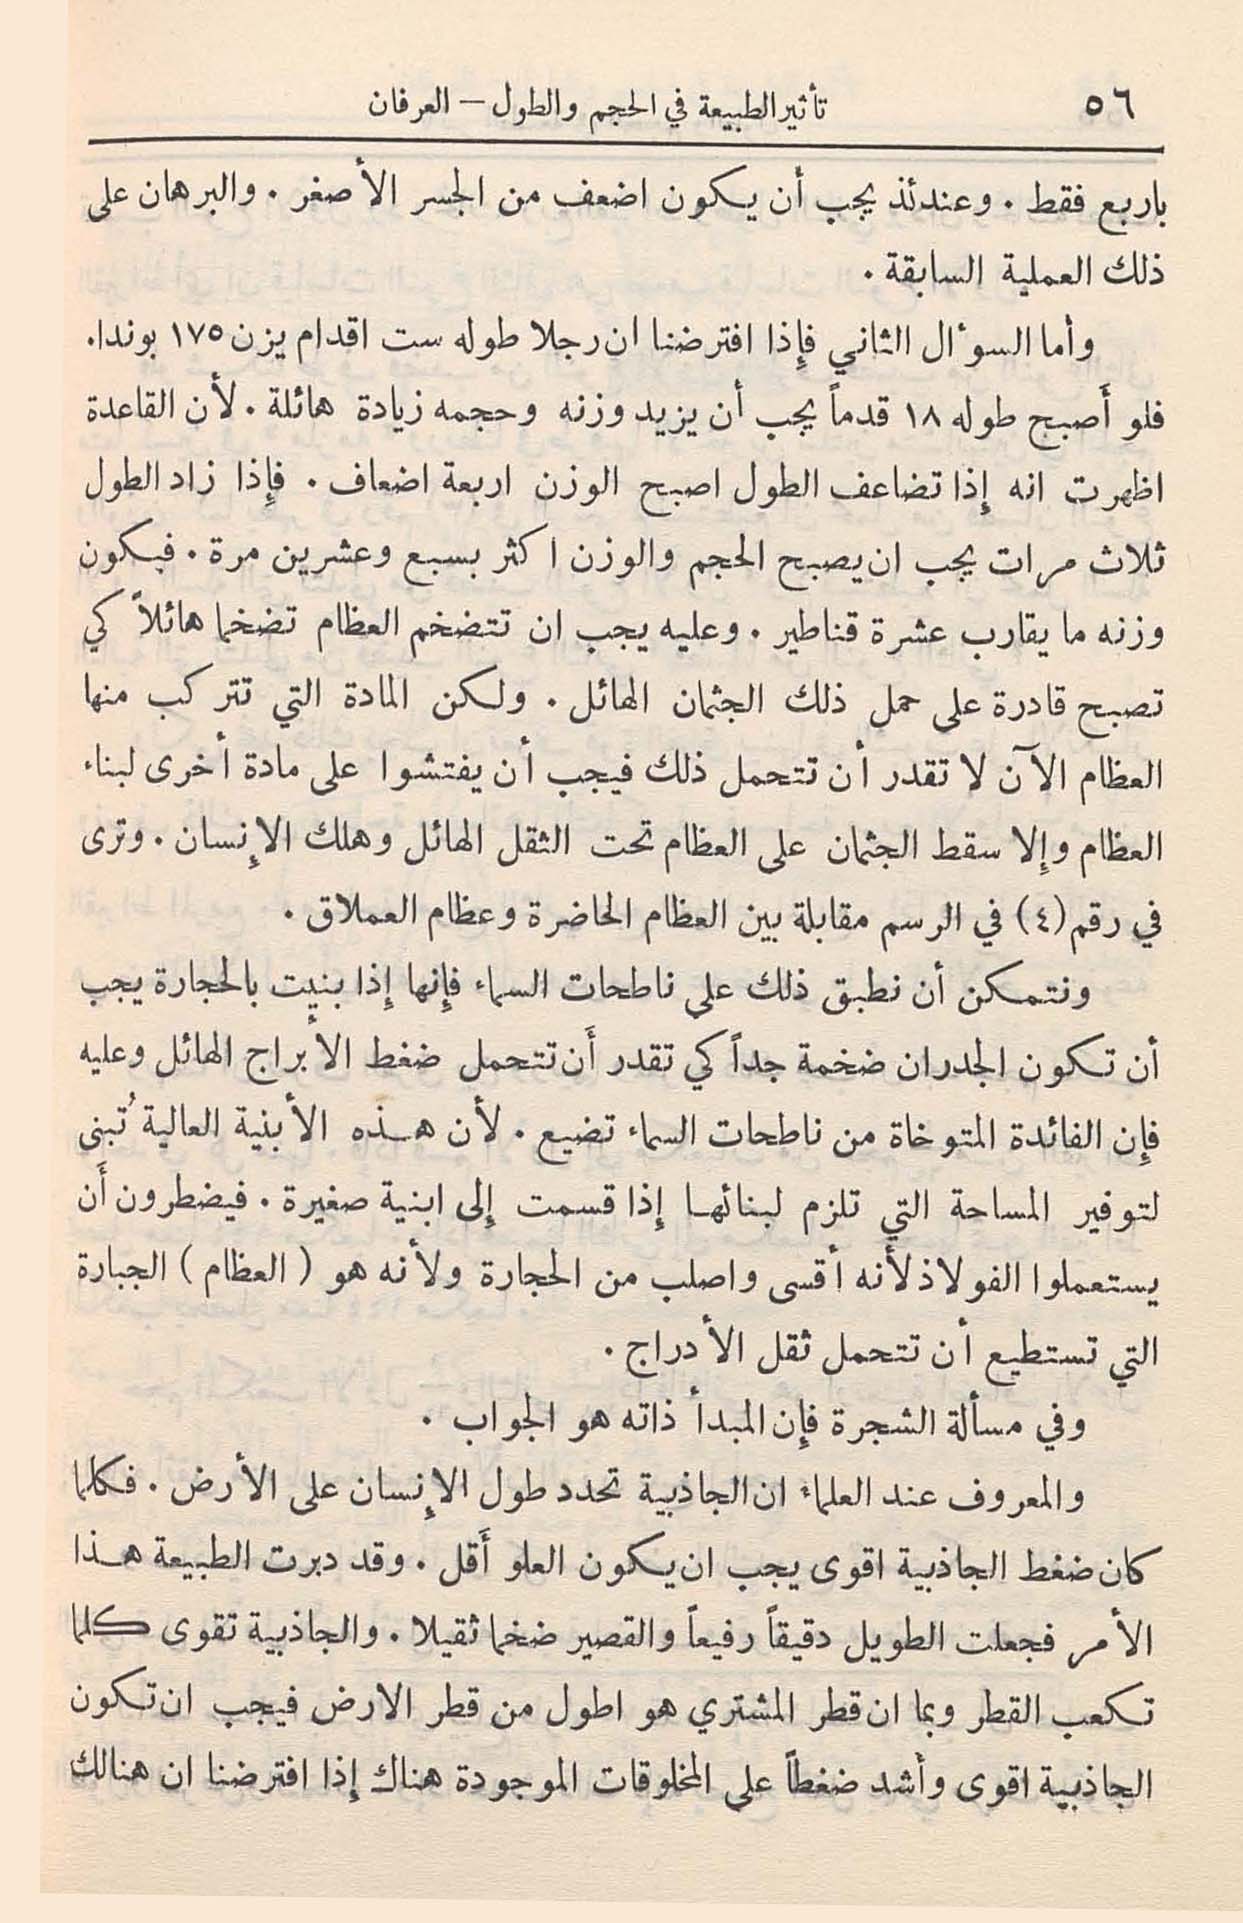 ٥٦
تأثير الطبيعة في الحجم والطول – العرفان
باربع فقط . وعندئذ يجب أن يكون اضعف من الجسر الأصغر . والبرهان على
ذلك العملية السابقة .
وأما السؤال الثاني فإذا افترضنا ان رجلا طوله ست اقدام يزن ١٧٥ بوندا.
فلو أصبح طوله ١٨ قدماً يجب أن يزيد وزنه وحجمه زيادة هائلة . لأن القاعدة
اظهرت انه إذا تضاعف الطول اصبح الوزن اربعة اضعاف . فإذا زاد الطول
ثلاث مرات يجب ان يصبح الحجم والوزن اكثر بسبع وعشرين مرة . فيكون
وزنه ما يقارب عشرة قناطير . وعليه يجب ان تتضخم العظام تضخما هائلاً كي
تصبح قادرة على حمل ذلك الجثمان الهائل . ولكن المادة التي تتركب منها
العظام الآن لا تقدر أن تتحمل ذلك فيجب أن يفتشوا على مادة أخرى لبناء
العظام وإلا سقط الجثمان على العظام تحت الثقل الهائل وهلك الإنسان . وترى
في رقم (٤) في الرسم مقابلة بين العظام الحاضرة وعظام العملاق .
ونتمكن أن نطبق ذلك على ناطحات السماء فإنها إذا بنيت بالحجارة يجب
أن تكون الجدران ضخمة جداً كي تقدر أَن تتحمل ضغط الأبراج الهائل وعليه
فإن الفائدة المتوخاة من ناطحات السماء تضيع . لأن هذه الأبنية العالية تُبنى
لتوفير المساحة التي تلزم لبنائها إذا قسمت إلى ابنية صغيرة . فيضطرون أَن
يستعملوا الفولاذ لأنه أقسى واصلب من الحجارة ولأنه هو ( العظام ) الجبارة
التي تستطيع أن تتحمل ثقل الأدراج .
وفي مسألة الشجرة فإن المبدأ ذاته هو الجواب .
والمعروف عند العلماء ان الجاذبية تحدد طول الإنسان على الأرض . فكلما
كان ضغط الجاذبية اقوى يجب ان يكون العلو أَقل . وقد دبرت الطبيعة هذا
الأمر فجعلت الطويل دقيقاً رفيعاً والقصير ضخما ثقيلا . والجاذبية تقوى كلما
تكعب القطر وبما ان قطر المشتري هو اطول من قطر الارض فيجب ان تكون
الجاذبية اقوى وأشد ضغطاً على المخلوقات الموجودة هناك إذا افترضنا ان هنالك